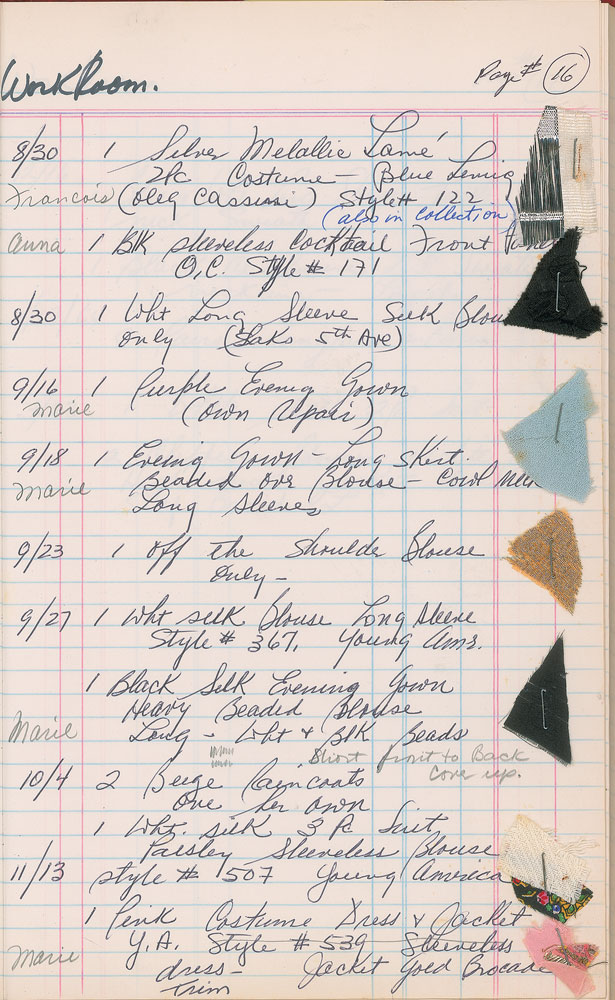 WorkRoom.
Page # 16
8/30 1 Silver Metallic Lamé
2Pc Costume - Blue Lining
Francois (Oleg Cassini) Style # 122
(also in collection)
Anna 1 Blk Sleeveless Cocktail Front
O.C. Style # 171
8/30 1 Wht Long Sleeve Silk Blou
only (Saks 5th Ave)
9/16 1 Purple Evening Gown
Marie (own repair)
9/18 1 Evening Gown - Long Skirt.
Marie Beaded over Blouse - Cowl Neck
Long Sleeves
9/23 1 off the Shoulder Blouse
Only -
9/27 1 Wht silk Blouse Long Sleeve
Style # 367. Young Amr.
1 Black Silk Evening Gown
Heavy Beaded Blouse
Marie Long - Wht + Blk Beads
Short front to Back
Cover up.
10/4 2 Beige Raincoats
One her own
1 Wht. silk 3 Pc Suit
Paisley Sleeveless Blouse
11/13 style # 507 Young America
1 Pink Costume Dress & Jacket
Y.A. Style # 539 Sleeveless
Marie dress - Jacket Gold Brocade
trim